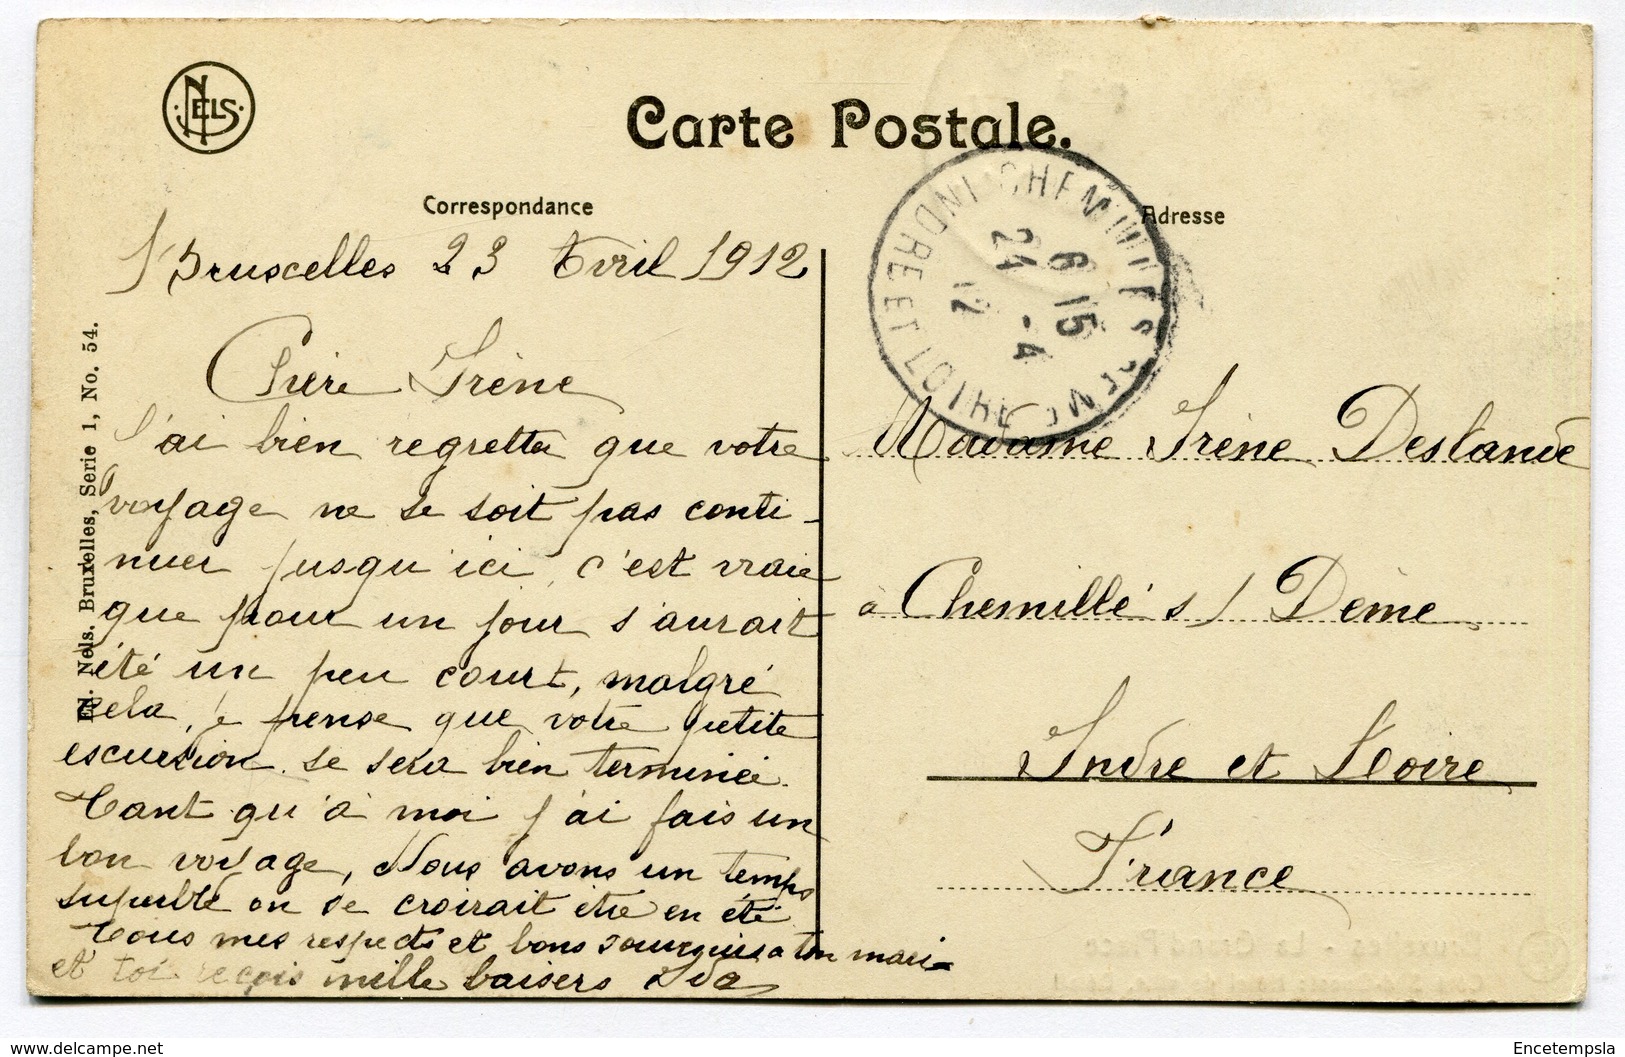 NELS
Carte Postale.
Correspondance
Adresse
Bruscelles 23 Avril 1912
Chère Irène
J'ai bien regretté que votre
voyage ne se soit pas conti-
nuer jusqu'ici, c'est vraie
que pour un jour s'aurait
été un peu court, malgré
cela, je pense que votre petite
escursion se sera bien terminée.
Tant qu'à moi j'ai fais un
bon voyage, Nous avons un temps
superbe on se croirait être en été
Tous mes respects et bons souvenirs a ton mari
et toi reçois mille baisers Ida
Ed. Nels. Bruxelles, Serie 1, No. 54.
CHEMILLÉ S. DÊME
6 15
24 -4
12
INDRE ET LOIRE
Madame Irène Deslande
à Chemillé s/ Dême
Indre et Loire
France
www.delcampe.net
Encetempsla